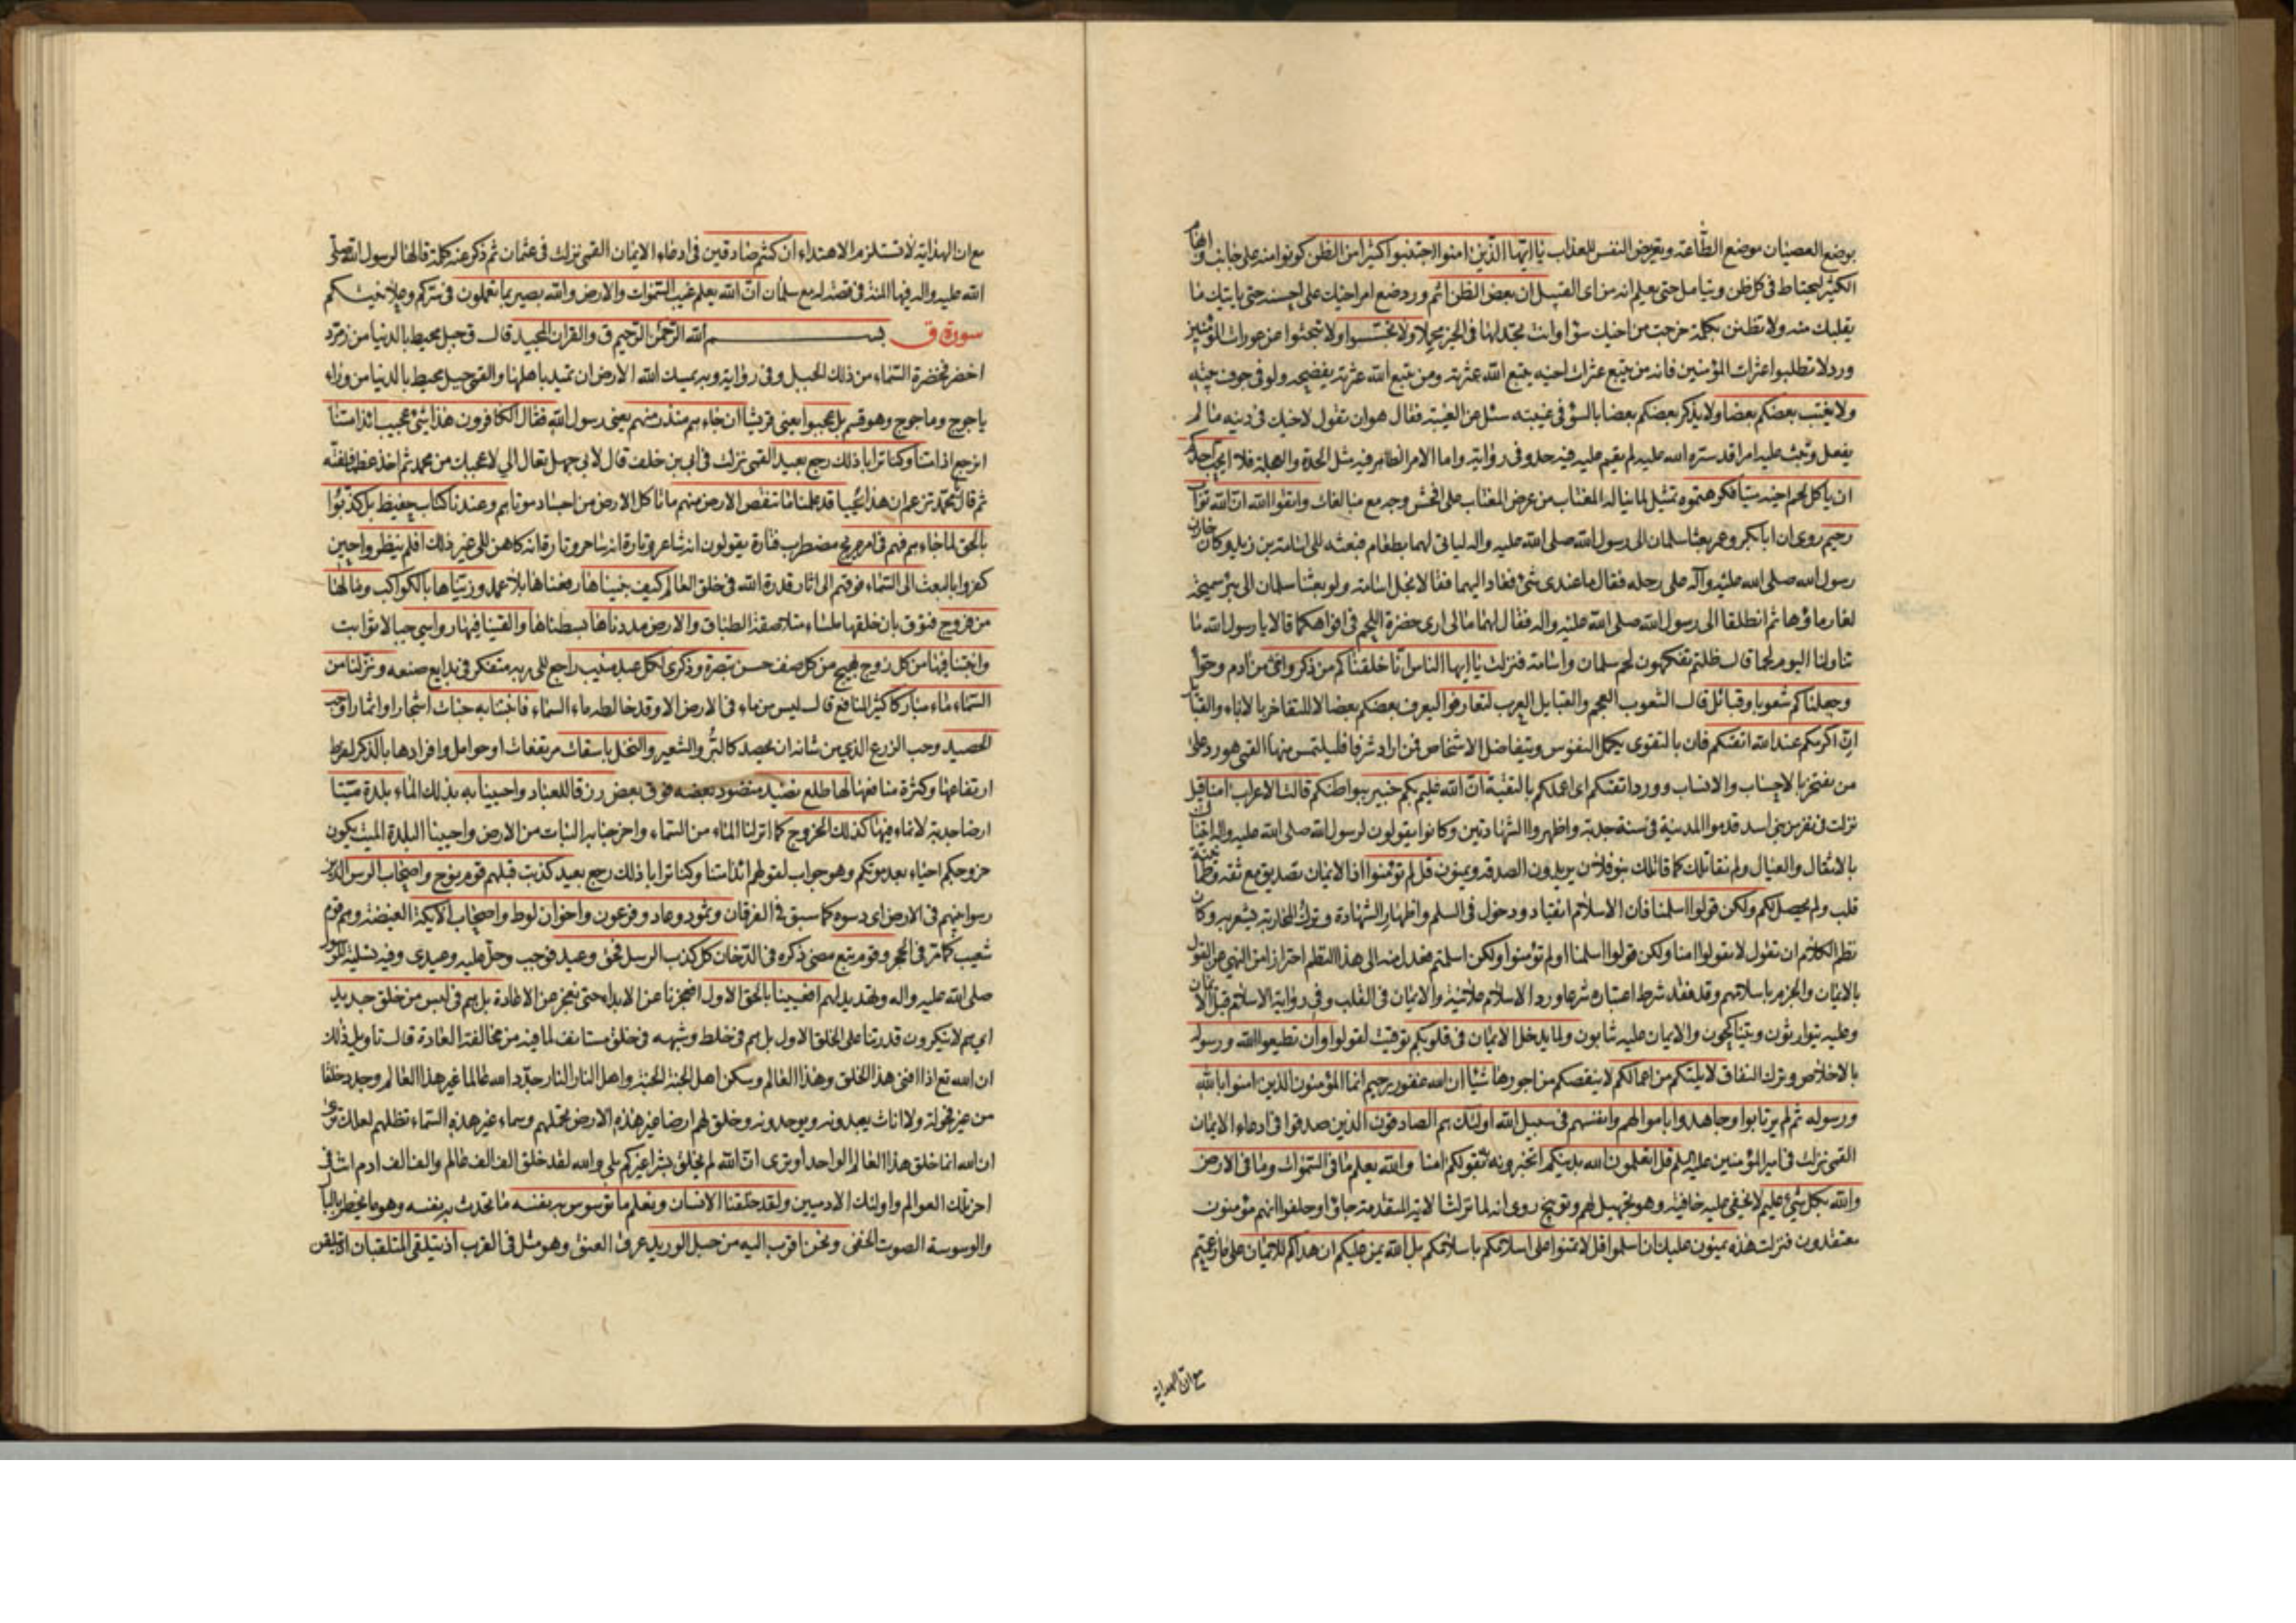 بوضع العصيان موضع الطاعة وبتعريض النفس للعذاب يا ايها الذين امنوا اجتنبوا كثيرا من الظن كونوا منه على جانب وابهام
الكثير ليحتاط في كل ظن ويتامل حتى يعلم انه من اي القبيل ان بعض الظن اثم ورد ضع امر اخيك على احسنه حتى ياتيك ما
يقلبك منه ولا تظنن بكلمة خرجت من اخيك سوءا وانت تجد لها في الخير محملا ولا تجسسوا ولا تبحثوا عن عورات المؤمنين
ورد لا تطلبوا عثرات المؤمنين فانه من يتبع عثرات اخيه يتبع الله عثرته ومن يتبع الله عثرته يفضحه ولو في جوف بيته
ولا يغتب بعضكم بعضا ولا يذكر بعضكم بعضا بالسوء في غيبته سئل عن الغيبة فقال هو ان تقول لاخيك في دينه ما لم
يفعل وتبث عليه امرا قد ستره الله عليه لم يقم عليه فيه حد وفي رواية واما الامر الظاهر فيه مثل الحدة والعجلة فلا ايحب احدكم
ان ياكل لحم اخيه ميتا فكرهتموه تمثيل لما يناله المغتاب من عرض المغتاب على افحش وجه مع مبالغات واتقوا الله ان الله تواب
رحيم روي ان ابا بكر وعمر بعثا سلمان الى رسول الله صلى الله عليه واله لياتي لهما بطعام فبعثه الى اسامة بن زيد وكان خازن
رسول الله صلى الله عليه وآله على رحله فقال ما عندي شيء فعاد اليهما فقالا بخل اسامة ولو بعثنا سلمان الى بئر سميحة
لغار ماؤها ثم انطلقا الى رسول الله صلى الله عليه واله فقال لهما ما لي ارى خضرة اللحم في افواهكما قالا يا رسول الله ما
تناولنا اليوم لحما قال ظلتم تفكهون لحم سلمان واسامة فنزلت يا ايها الناس انا خلقناكم من ذكر وانثى من ادم وحوا
وجعلناكم شعوبا وقبائل قال الشعوب العجم والقبايل العرب لتعارفوا ليعرف بعضكم بعضا لا للتفاخر بالاباء والقبايل
ان اكرمكم عند الله اتقيكم فان بالتقوى تكمل النفوس ويتفاضل الاشخاص فمن اراد شرفا فليلتمس منها القمي هو رد على
من يفتخر بالاحساب والانساب وورد اتقيكم اي اعملكم بالتقية ان الله عليم بكم خبير ببواطنكم قالت الاعراب امنا قيل
نزلت في نفر من بني اسد قدموا المدينة في سنة جدبة واظهروا الشهادتين وكانوا يقولون لرسول الله صلى الله عليه واله اتيناك
بالاثقال والعيال ولم نقاتلك كما قاتلك بنو فلان يريدون الصدقة ويمنون قل لم تؤمنوا اذ الايمان تصديق مع ثقة وطمانينة
قلب ولم يحصل لكم ولكن قولوا اسلمنا فان الاسلام انقياد ودخول في السلم واظهار الشهادة وترك المحاربة يشعر به وكان
نظم الكلام ان تقول لا تقولوا امنا ولكن قولوا اسلمنا او لم تؤمنوا ولكن اسلمتم فعدل منه الى هذا النظم احترازا من النهي عن القول
بالايمان والجزم باسلامهم وقد فقد شرط اعتباره شرعا ورد الاسلام علانية والايمان في القلب وفي رواية الاسلام قبل الايمان
وعليه يتوارثون ويتناكحون والايمان عليه يثابون ولما يدخل الايمان في قلوبكم توقيت لقولوا وان تطيعوا الله ورسوله
بالاخلاص وترك النفاق لا يلتكم من اعمالكم لا ينقصكم من اجورها شيئا ان الله غفور رحيم انما المؤمنون الذين امنوا بالله
ورسوله ثم لم يرتابوا وجاهدوا باموالهم وانفسهم في سبيل الله اولئك هم الصادقون الذين صدقوا في ادعاء الايمان
القمي نزلت في امير المؤمنين عليه السلم قل اتعلمون الله بدينكم اتخبرونه بقولكم امنا والله يعلم ما في السموات وما في الارض
والله بكل شيء عليم لا يخفى عليه خافية وهو تجهيل لهم وتوبيخ روي انه لما نزلت الاية المتقدمة جاؤا وحلفوا انهم مؤمنون
معتقدون فنزلت هذه يمنون عليك ان اسلموا قل لا تمنوا على اسلامكم باسلامكم بل الله يمن عليكم ان هداكم للايمان على ما زعمتم
مع ان الهداية
مع ان الهداية لا تستلزم الاهتداء ان كنتم صادقين في ادعاء الايمان القمي نزلت في عثمان ثم ذكر عنه كلمة قالها لرسول الله صلى
الله عليه واله فيها المنة في قصة له مع سلمان ان الله يعلم غيب السموات والارض والله بصير بما تعملون في سركم وعلانيتكم
سورة ق بسم الله الرحمن الرحيم ق والقران المجيد قال ق جبل محيط بالدنيا من زمرد
اخضر فخضرة السماء من ذلك الجبل وفي رواية وبه يمسك الله الارض ان تميد باهلها والقمي جبل محيط بالدنيا من وراء
ياجوج وماجوج وهو قسم بل عجبوا يعني قريشا ان جاءهم منذر منهم يعني رسول الله فقال الكافرون هذا شيء عجيب ائذا متنا
انرجع اذا متنا وكنا ترابا ذلك رجع بعيد القمي نزلت في ابي بن خلف قال لابي جهل تعال الي لاعجبك من محمد ثم اخذ عظما ففته
ثم قال يا محمد تزعم ان هذا يحيا قد علمنا ما تنقص الارض منهم ما تاكل الارض من اجساد موتاهم وعندنا كتاب حفيظ بل كذبوا
بالحق لما جاءهم فهم في امر مريج مضطرب فتارة يقولون انه شاعر وتارة انه ساحر وتارة انه كاهن الى غير ذلك افلم ينظروا حين
كفروا بالبعث الى السماء فوقهم الى اثار قدرة الله في خلق العالم كيف بنيناها رفعناها بلا عمد وزيناها بالكواكب وما لها
من فروج فتوق بان خلقها ملساء متلاصقة الطباق والارض مددناها بسطناها والقينا فيها رواسي جبالا ثوابت
وانبتنا فيها من كل زوج بهيج من كل صنف حسن تبصرة وذكرى لكل عبد منيب راجع الى ربه متفكر في بدايع صنعه ونزلنا من
السماء ماء مباركا كثير المنافع قال ليس من ماء في الارض الا وقد خالطه ماء السماء فانبتنا به جنات اشجارا واثمارا وحب
الحصيد وحب الزرع الذي من شانه ان يحصد كالبر والشعير والنخل باسقات مرتفعات او حوامل وافرادها بالذكر لفرط
ارتفاعها وكثرة منافعها لها طلع نضيد منضود بعضه فوق بعض رزقا للعباد واحيينا به بذلك الماء بلدة ميتا
ارضا جدبة لا نماء فيها كذلك الخروج كما انزلنا الماء من السماء واخرجنا به النبات من الارض واحيينا البلدة الميت يكون
خروجكم احياء بعد موتكم وهو جواب لقولهم ائذا متنا وكنا ترابا ذلك رجع بعيد كذبت قبلهم قوم نوح واصحاب الرس الذين
رسوا نبيهم في الارض اي دسوه كما سبق في الفرقان وثمود وعاد وفرعون واخوان لوط واصحاب الايكة الغيضة وهم قوم
شعيب كما مر في الحجر وقوم تبع مضى ذكره في الدخان كل كذب الرسل فحق وعيد فوجب وحل عليه وعيدي وفيه تسلية للرسول
صلى الله عليه واله وتهديد لهم افعيينا بالخلق الاول افعجزنا عن الابداء حتى نعجز عن الاعادة بل هم في لبس من خلق جديد
اي هم لا ينكرون قدرتنا على الخلق الاول بل هم في خلط وشبهه في خلق مستانف لما فيه من مخالفة العادة قال تاويل ذلك
ان الله تع اذا افنى هذا الخلق وهذا العالم وسكن اهل الجنة الجنة واهل النار النار جدد الله عالما غير هذا العالم وجدد خلقا
من غير فحولة ولا اناث يعبدونه ويوحدونه وخلق لهم ارضا غير هذه الارض تحملهم وسماء غير هذه السماء تظلهم لعلك ترى
ان الله انما خلق هذا العالم الواحد او ترى ان الله لم يخلق بشرا غيركم بلى والله لقد خلق الف الف عالم والف الف ادم انت في
اخر تلك العوالم واولئك الادميين ولقد خلقنا الانسان ونعلم ما توسوس به نفسه ما تحدث به نفسه وهو ما يخطر بالبال
والوسوسة الصوت الخفي ونحن اقرب اليه من حبل الوريد عرق العنق وهو مثل في القرب اذ يتلقى المتلقيان اذ يتلقن